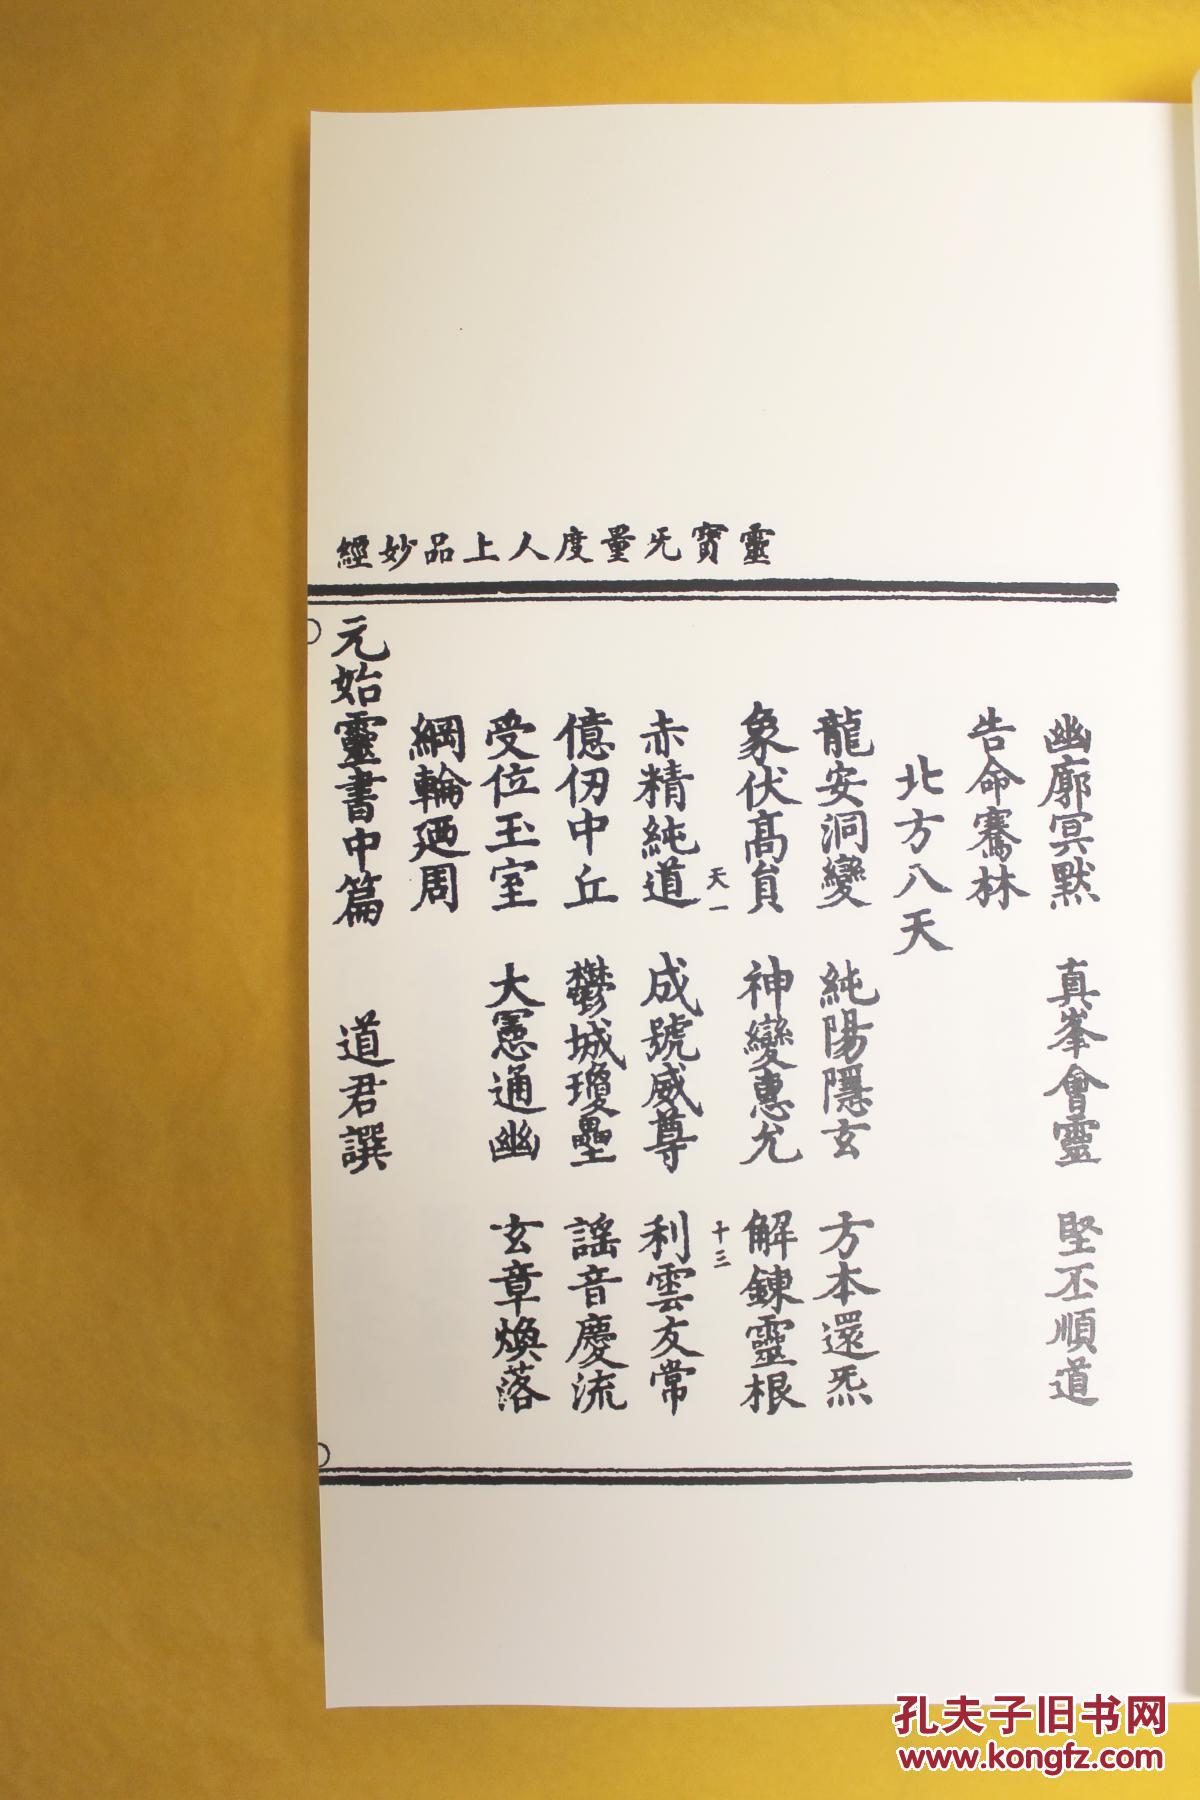 靈寳旡量度人上品妙經
幽廓冥默 真峯會靈 堅丕順道
告命騫林
北方八天
龍安洞變 純陽隱玄 方本還炁
象伏髙貟 神變惠尤 解錬靈根
天一 十三
赤精純道 成號威尊 利雲友常
億仞中丘 鬱城瓊壘 謡音慶流
受位玉室 大憲通幽 玄章煥落
綱輪廻周
元始靈書中篇 道君譔
孔夫子旧书网
www.kongfz.com